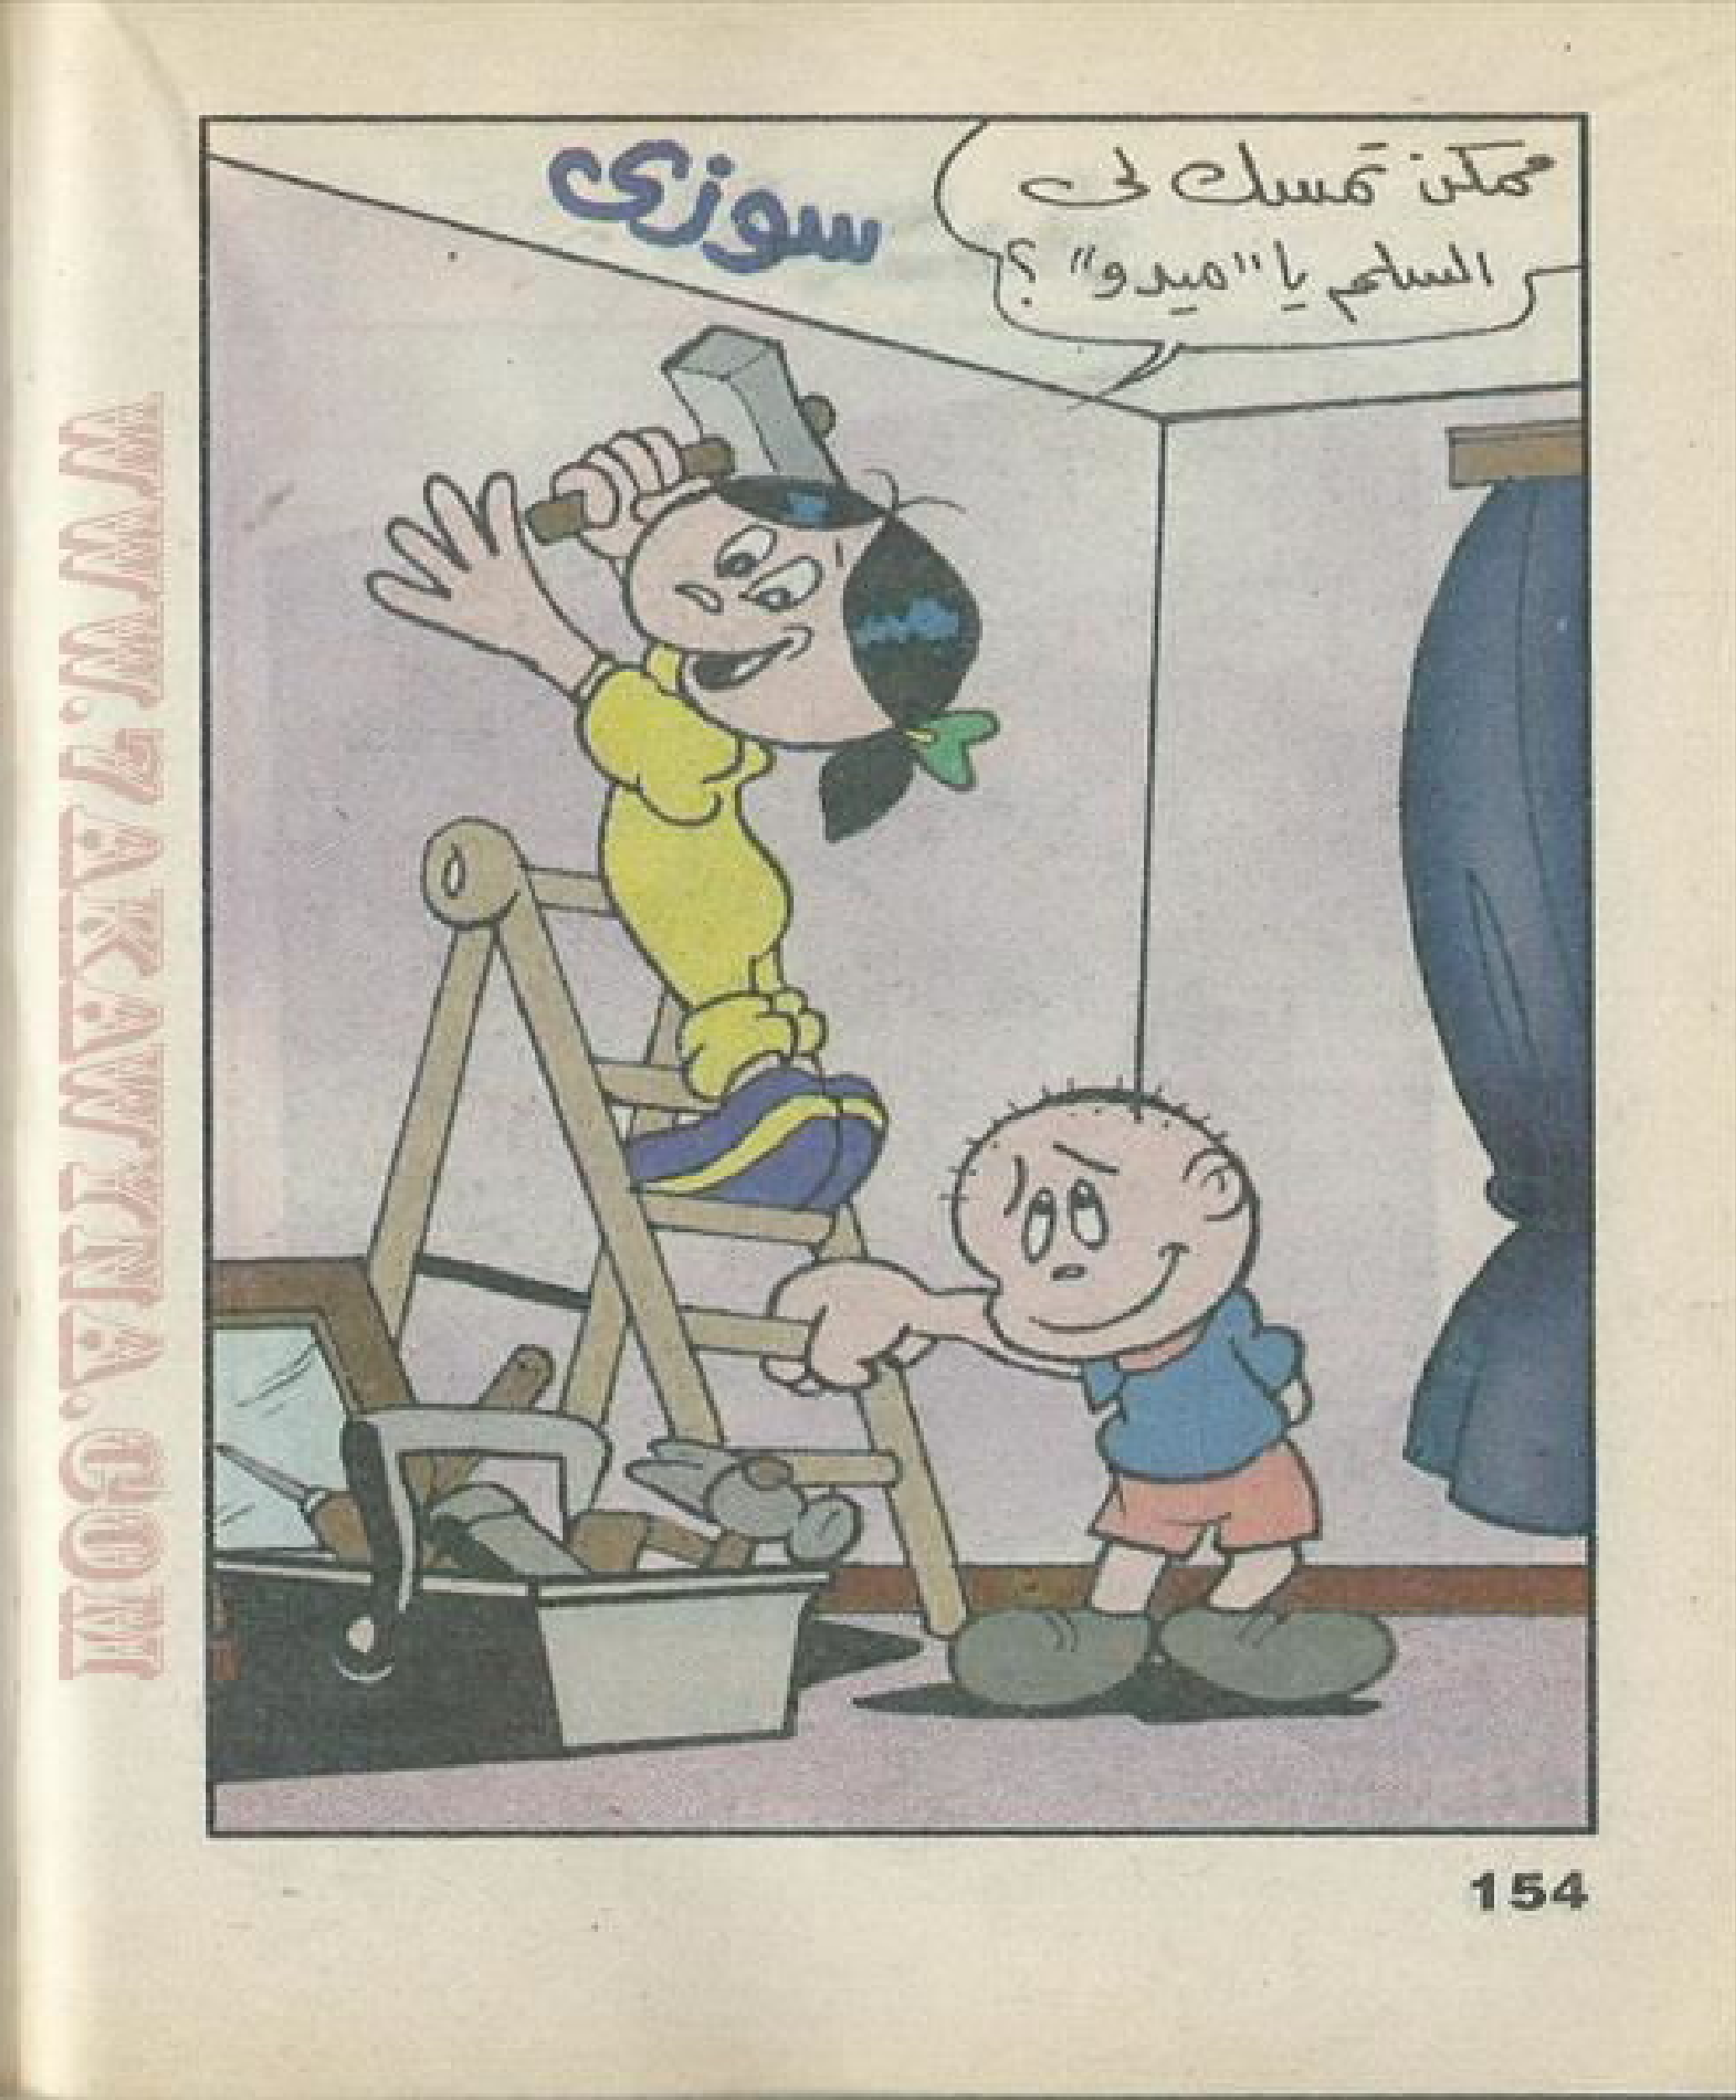 سوزى
ممكن تمسك لى
السلم يا "ميدو" ؟
WWW.7AKAWYNA.COM
154